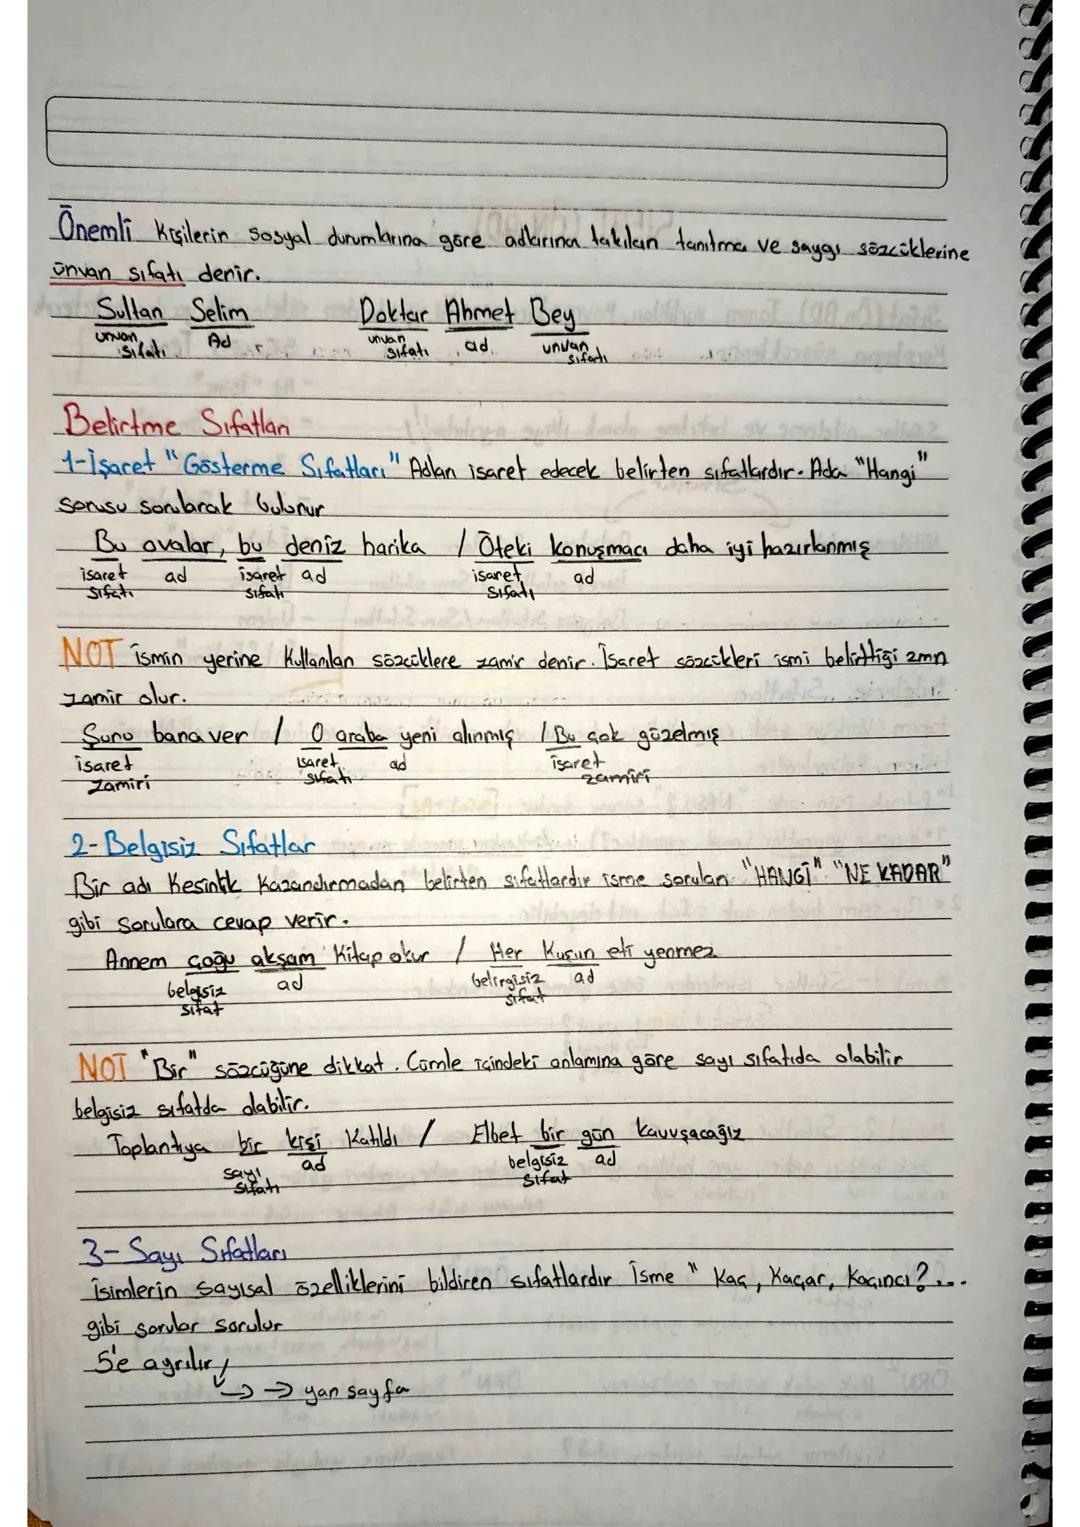 Önemli Kişilerin sosyal durumlarına göre adlarına takılan tanıtma ve saygı sözcüklerine
ünvan sıfatı denir.
Sultan Selim Doktor Ahmet Bey
unvan sıfatı Ad unvan sıfatı ad unvan sıfatı
Belirtme Sıfatları
1-İşaret "Gösterme Sıfatları" Adları işaret edecek belirten sıfatlardır. Ada "Hangi"
sorusu sorularak bulunur
Bu ovalar, bu deniz harika / Öteki konuşmacı daha iyi hazırlanmış
işaret sıfatı ad işaret sıfatı ad işaret sıfatı ad
NOT ismin yerine kullanılan sözcüklere zamir denir. İşaret sözcükleri ismi belirttiği zmn
zamir olur.
Şunu bana ver / O araba yeni alınmış / Bu çok güzelmiş
işaret zamiri işaret sıfatı ad işaret zamiri
2-Belgisiz Sıfatlar
Bir adı Kesinlik Kazandırmadan belirten sıfatlardır isme sorulan "HANGİ" "NE KADAR"
gibi sorulara cevap verir.
Annem çoğu akşam Kitap okur / Her Kuşun eti yenmez
belgisiz sıfat ad belirgisiz sıfat ad
NOT "Bir" sözcüğüne dikkat. Cümle içindeki anlamına göre sayı sıfatıda olabilir
belgisiz sıfatda olabilir.
Toplantıya bir kişi Katıldı / Elbet bir gün kavuşacağız
sayı sıfatı ad belgisiz sıfat ad
3-Sayı Sıfatları
isimlerin sayısal özelliklerini bildiren sıfatlardır İsme " Kaç, Kaçar, Kaçıncı?...
gibi sorular sorulur
5'e ayrılır
→ → yan sayfa